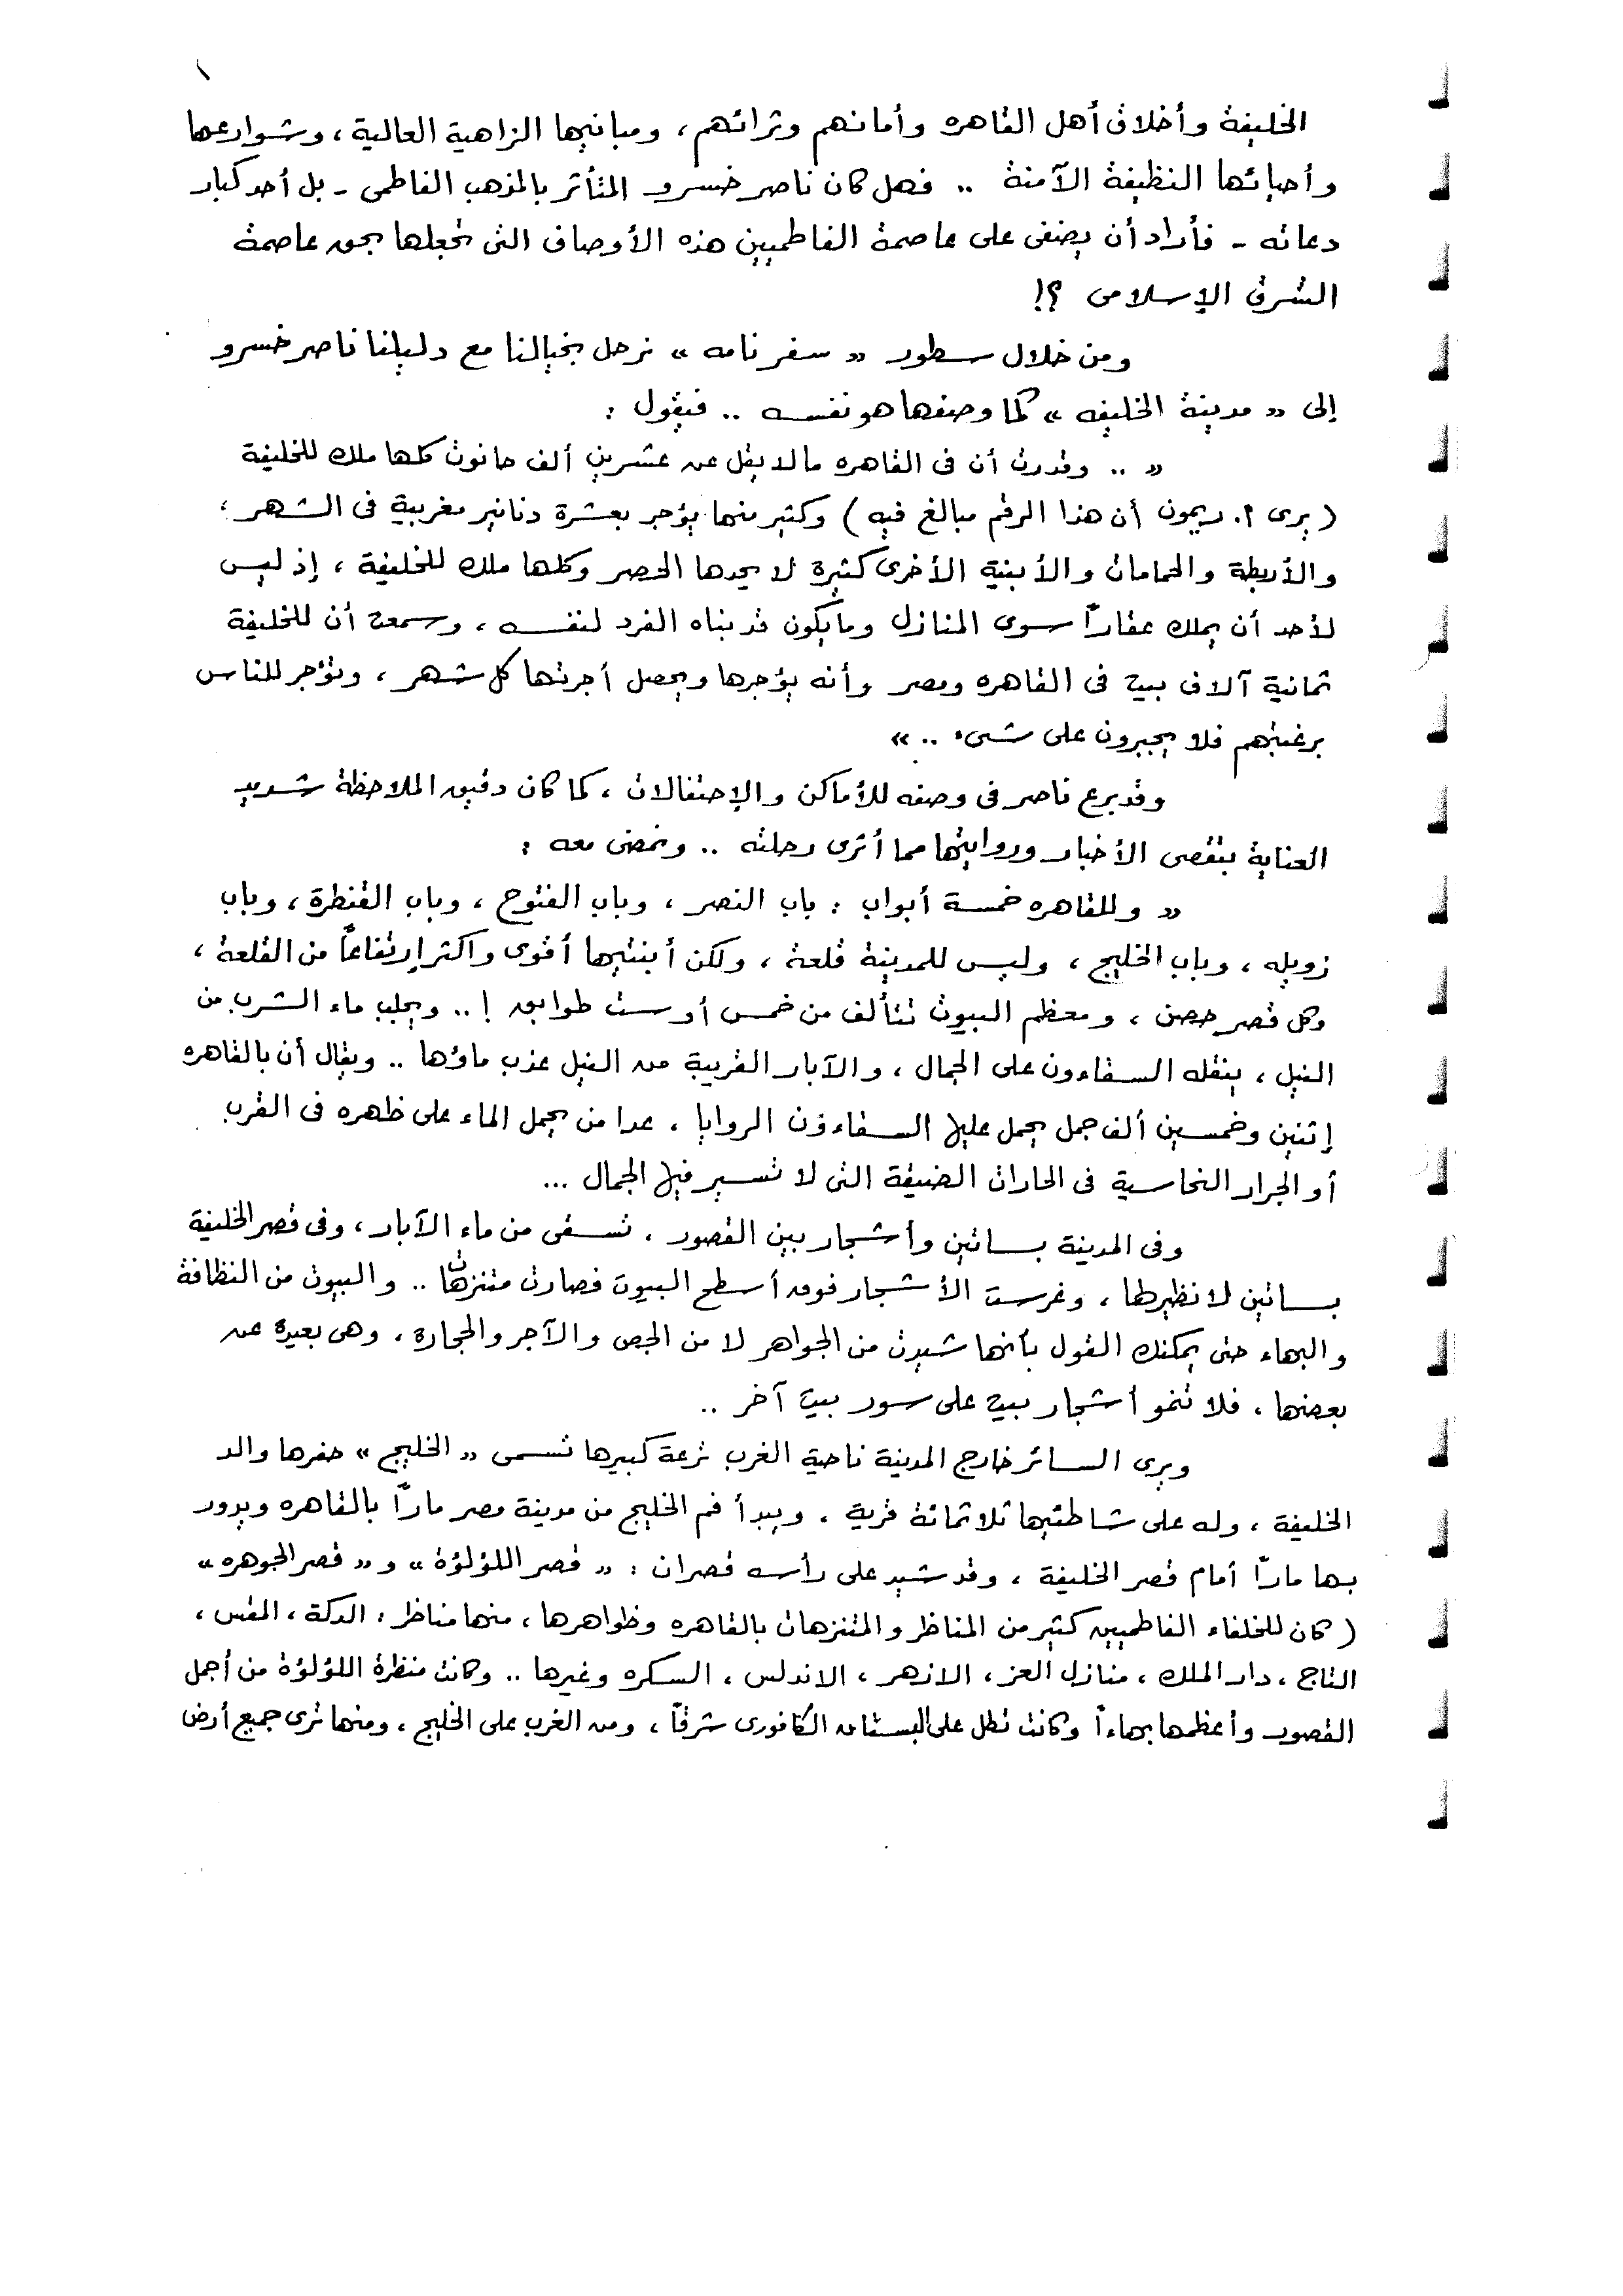 ١
الخليفة وأخلاق أهل القاهره وأمانهم وثرائهم ، ومبانيها الزاهية العالية ، وشوارعها
وأحيائها النظيفة الآمنة .. فهل كان ناصر خسرو المتأثر بالمذهب الفاطمى - بل أحد كبار
دعاته - فأراد أن يضفى على عاصمة الفاطميين هذه الأوصاف التى تجعلها بحق عاصمة
الشرق الإسلامى ؟!
ومن خلال سطور « سفر نامه » نرحل بخيالنا مع دليلنا ناصر خسرو
إلى « مدينة الخليفه » كما وصفها هو نفسه .. فيقول :
« .. وقدرت أن فى القاهره مالا يقل عن عشرين ألف حانوت كلها ملك للخليفة
( يرى أ. ريمون أن هذا الرقم مبالغ فيه ) وكثير منها يؤجر بعشرة دنانير مغربية فى الشهر ،
والأربطة والحمامات والأبنية الأخرى كثيرة لا يحدها الحصر وكلها ملك للخليفة ، إذ ليس
لأحد أن يملك عقاراً سوى المنازل ومايكون قد بناه الفرد لنفسه ، وسمعت أن للخليفة
ثمانية آلاف بيت فى القاهره ومصر وأنه يؤجرها ويحصل أجرتها كل شهر ، وتؤجر للناس
برغبتهم فلا يجبرون على شىء .. »
وقد برع ناصر فى وصفه للأماكن والإحتفالات ، كما كان دقيق الملاحظة شديد
العناية بتقصى الأخبار وروايتها مما أثرى رحلته .. ونمضى معه :
« وللقاهره خمسة أبواب : باب النصر ، وباب الفتوح ، وباب القنطرة ، وباب
زويله ، وباب الخليج ، وليس للمدينة قلعة ، ولكن أبنتيها أقوى واكثر إرتفاعاً من القلعة ،
وكل قصر حصن ، ومعظم البيوت تتألف من خمس أو ست طوابق ! .. ويجلب ماء الشرب من
النيل ، ينقله السقاءون على الجمال ، والآبار القريبة من النيل عذب ماؤها .. ويقال أن بالقاهره
إثنين وخمسين ألف جمل يحمل عليها السقاءون الروايا ، عدا من يحمل الماء على ظهره فى القرب
أو الجرار النحاسية فى الحارات الضيقة التى لا تسير فيها الجمال ...
وفى المدينة بساتين وأشجار بين القصور ، تسقى من ماء الآبار ، وفى قصر الخليفة
بساتين لا نظير لها ، وغرست الأشجار فوق أسطح البيوت فصارت متنزهات .. والبيوت من النظافة
والبهاء حتى يمكنك القول بأنها شيدت من الجواهر لا من الجص والآجر والحجارة ، وهى بعيدة عن
بعضها ، فلا تنمو أشجار بيت على سور بيت آخر ..
ويرى السائر خارج المدينة ناحية الغرب ترعة كبيرها تسمى « الخليج » حفرها والد
الخليفة ، وله على شاطئيها ثلاثمائة قرية ، ويبدأ فم الخليج من مدينة مصر ماراً بالقاهره ويدور
بها ماراً أمام قصر الخليفة ، وقد شيد على رأسه قصران : « قصر اللؤلؤة » و « قصر الجوهره »
( كان للخلفاء الفاطميين كثير من المناظر والمتنزهات بالقاهره وظواهرها ، منها مناظر : الدكة ، المقس ،
التاج ، دار الملك ، منازل العز ، الازهر ، الاندلس ، السكره وغيرها .. وكانت منظرة اللؤلؤة من أجمل
القصور وأعظمها بهاءاً وكانت تطل على البستان الكافورى شرقاً ، ومن الغرب على الخليج ، ومنها ترى جميع أرض